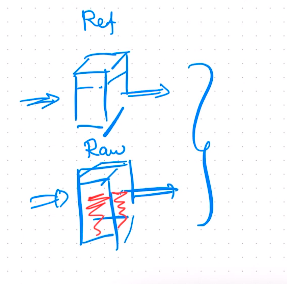 Ref
Raw